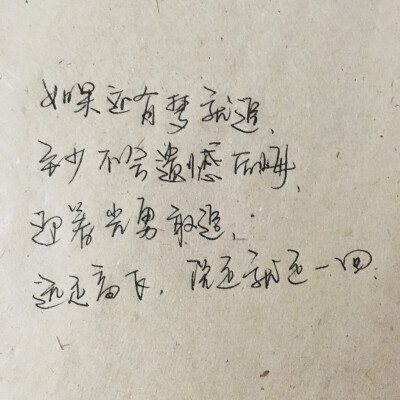 如果还有梦就追，
至少不会遗憾后悔，
迎着光勇敢追，
远走高飞，说走就走一回.